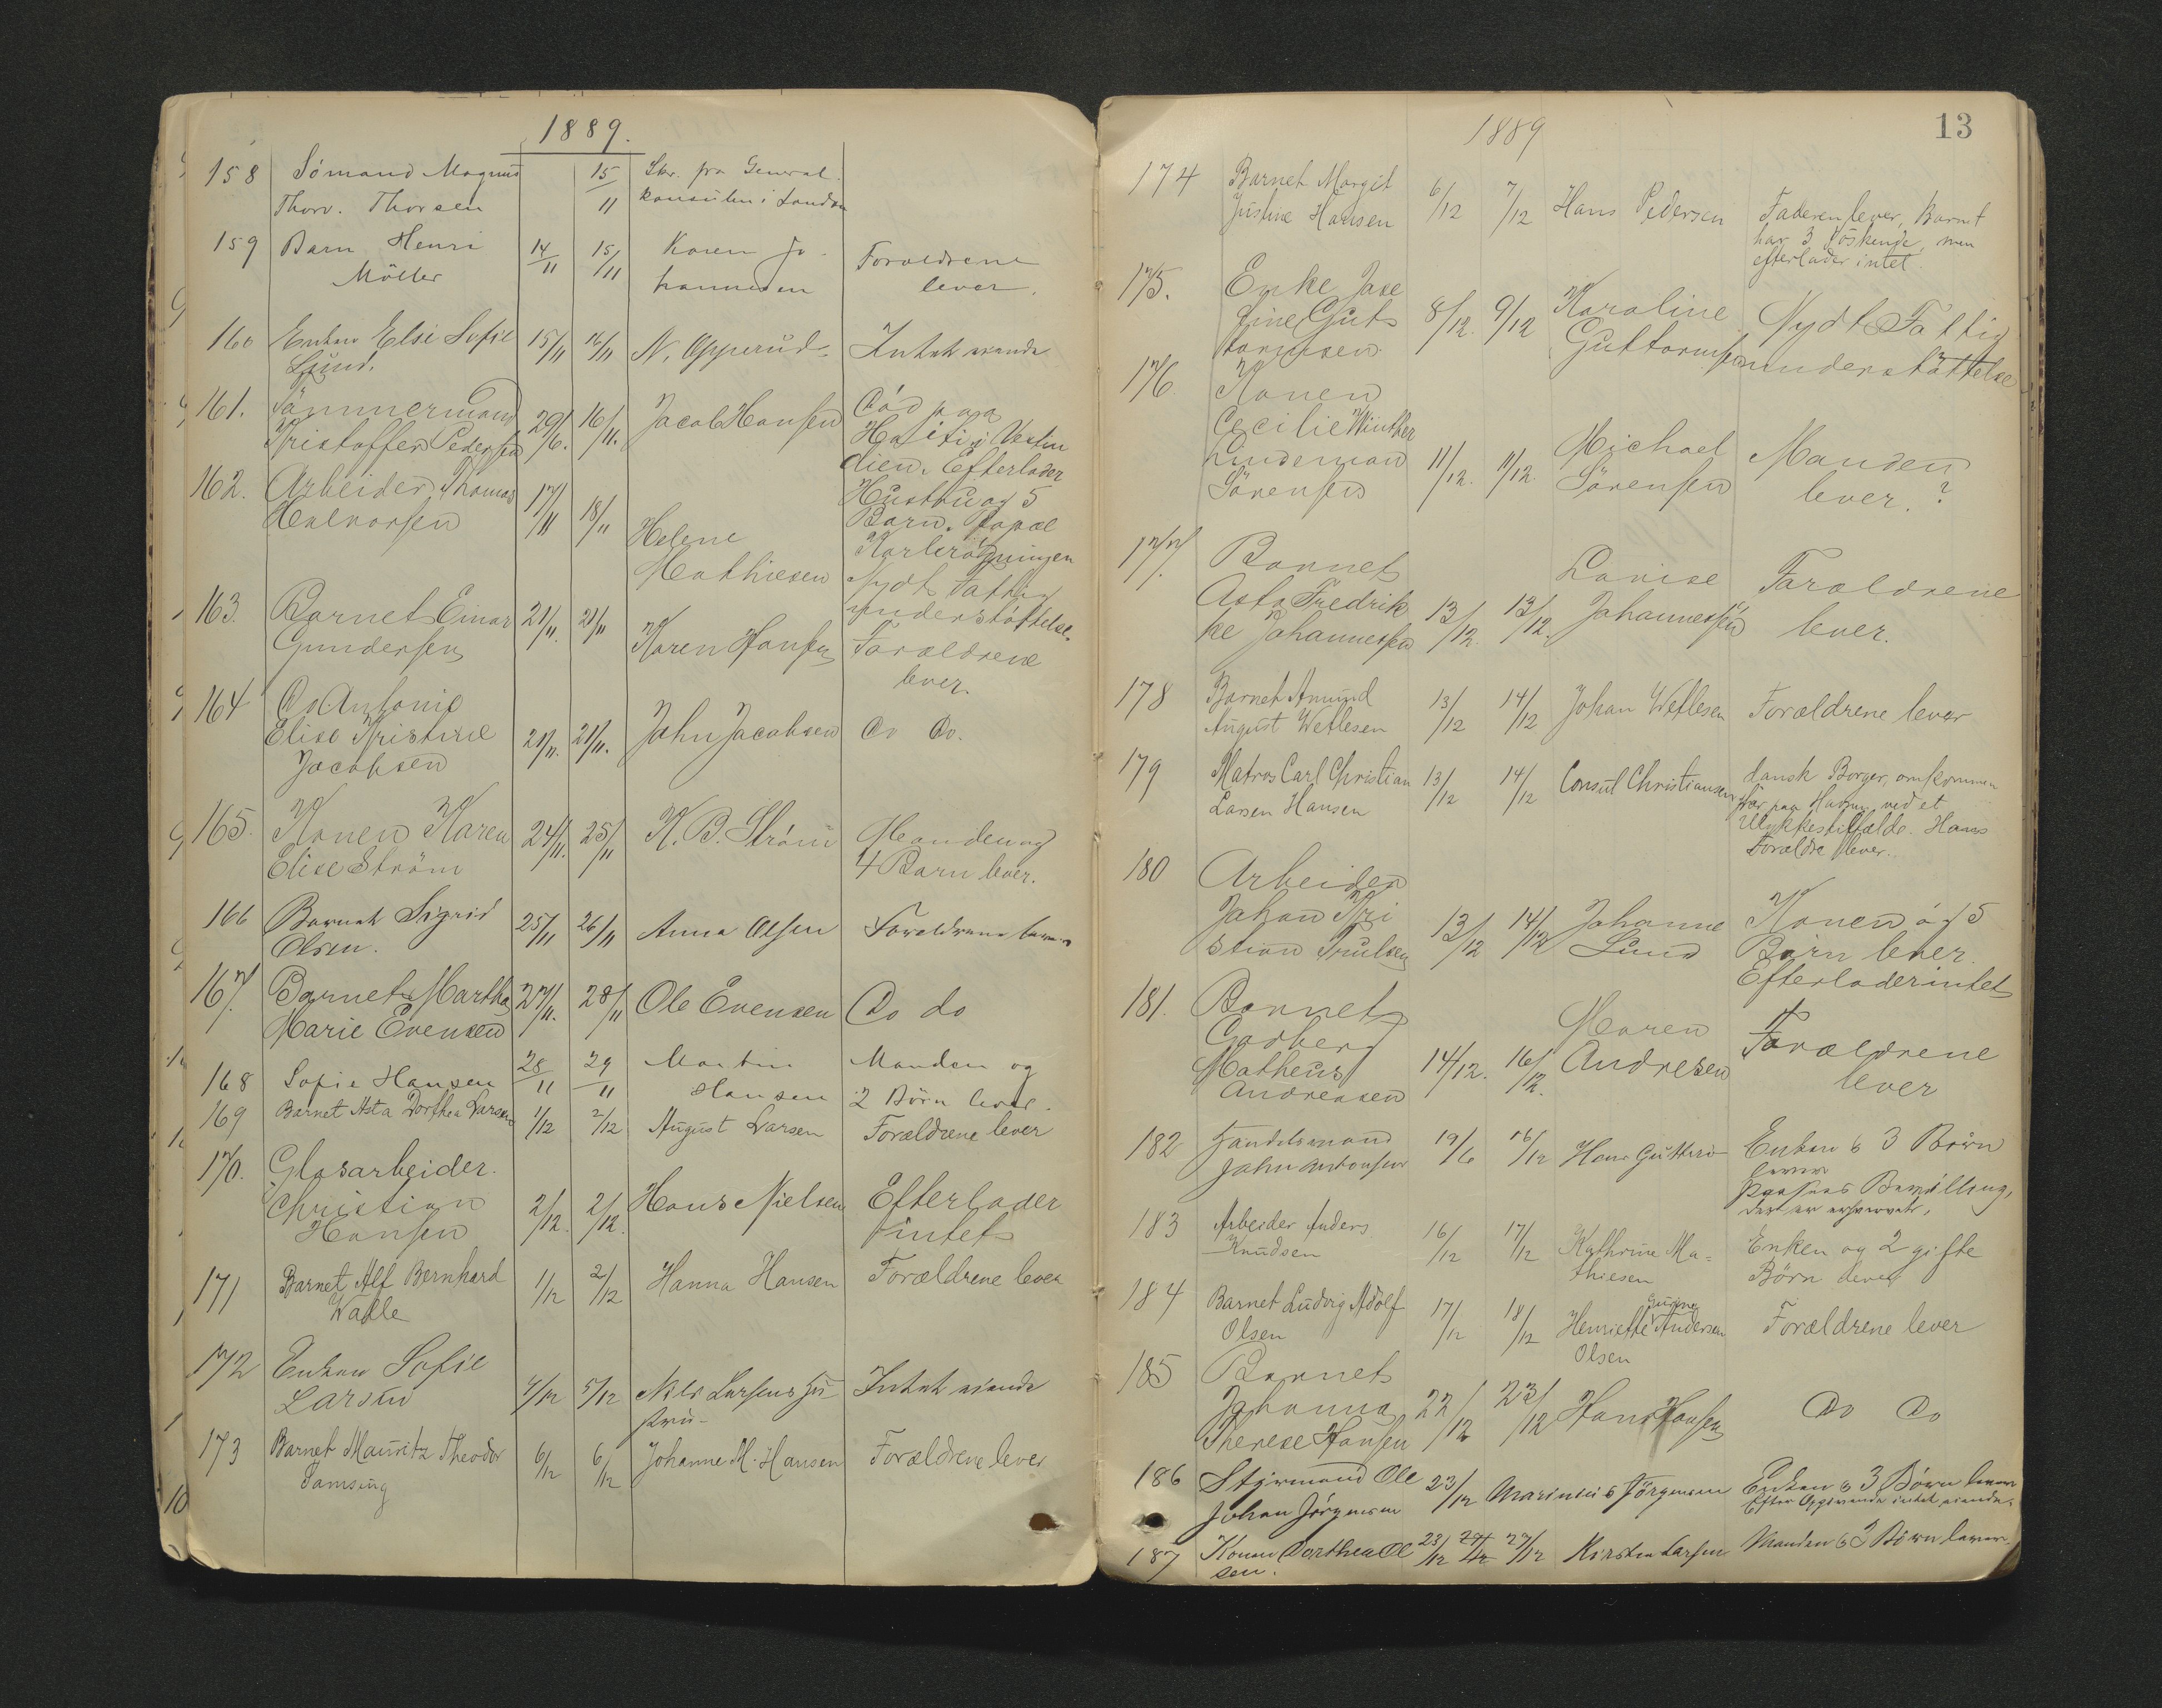 1889.
158 Sömand Magnus 15/11 Skr. fra General
Thorv. Thorsen konsulen i London
159 Barn Henri 14/11 15/11 Karen Jo- Forældrene
Möller hannesen lever.
160 Enken Elsi Sofie 15/11 16/11 N. Opperud Intet eiende
Lund.
161. Tömmermand 29/6. 16/11. Jacob Hansen Död paa
Kristoffer Pedersen Haiti i Vestin
dien. Efterlader
162. Arbeider Thomas 17/11 18/11 Hustru og 5
Halvorsen Helene Barn.
Mathiesen Nydt Fattig
understöttelse.
163. Barnet Einar 21/11. 21/11 Karen Hansen Forældrene
Gundersen lever.
164 Do Antonie
Elise Kristine 21/11. 21/11. John Jacobsen Do Do.
Jacobsen
165. Konen Karen 24/11. 25/11 K. B. Ström Manden og
Elise Ström 4 Barn lever.
166 Barnet Sigrid 25/11 26/11 Anna Olsen Forældrene lever
Olsen.
167. Barnet Martha 27/11. 28/11 Ole Evensen Do do
Marie Evensen
168 Sofie Hansen 28/11 29/11 Martin Manden og
Hansen 2 Börn lever.
169 Barnet Asta Dorthea Larsen 1/12 2/12 August Larsen Forældrene lever
170. Glasarbeider.
Christian 2/12. 2/12. Hans Nielsen Efterlader
Hansen intet
171 Barnet Alf Bernhard 1/12 2/12 Hanna Hansen Forældrene lever
Walle
172 Enken Sofie
Larsen 4/12 5/12 Nils Larsens Hu- Intet eiende
stru-
173 Barnet Mauritz Theodor 6/12 6/12 Johanne M. Hansen Forældrene lever
Samsing
13
1889
174 Barnet Margit 6/12 7/12 Hans Pedersen Faderen lever, Barnet
Justine Hansen har 3 Söskende, men
efterlader intet.
175. Enke Jose
fine Gut 8/12. 9/12 Karoline Nydt Fattig
tormsen Guttormsen understöttelse
176 Konen
Cecilie Winther
Lindeman 11/12. 11/12. Michael Manden
Sörensen Sörensen lever.?
177. Barnet Lovise Forældrene
Asta Fredrik 13/12. 13/12. Johannessen lever.
ke Johannessen
178 Barnet Amund 13/12 14/12 Johan Wetlesen Forældrene lever
August Wetlesen
179 Matros Carl Christian 13/12 14/12 Consul Christiansen dansk Borger, omkommen
Larsen Hansen her paa Havnen ved et
Ulykkestilfælde. Hans
Forældre lever.
180 Arbeider
Johan Kri 13/12 14/12 Johanne Konen og 5
stian Truulsen Lund Börn lever.
Efterlader intet
181. Barnet
Godberg Maren Forældrene
Matheus 14/12. 16/12. Andresen lever
Andreasen
182 Handelsmand 19/6 16/12 Hans Enken & 3 Börn
John Antonsen lever
Bevilling,
der er erhvervet.
183 Arbeider Anders 16/12 17/12 Kathrine Ma- Enken og 2 gifte
Knudsen thiesen Börn lever
184 Barnet Ludvig Adolf 17/12 18/12 Henriette Gurine Andersen Forældrene lever
Olsen Olsen
185 Barnet
Johanna 22/12 23/12 Hans Hansen Do Do
Therese Hansen
186 Styrmand Ole 23/12 Marinius Jörgensen Enken & 3 Börn lever
Johan Jörgensen Efter Opgivende intet eiende.
187 Konen Dorthea Ol 23/12 24/12 27/12 Kirsten Larsen Manden & 3 Börn lever.
sen.